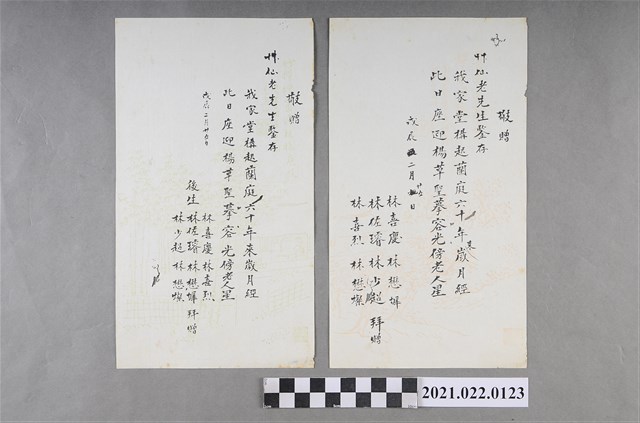 敬贈
竹仙老先生鑒存
我家堂構起蘭庭六十年來歲月經
此日座迎楊莘聖摹容光傍老人星
戊辰二月廿日
林喜慶 林懋
林佐璿 林少超 拜贈
林喜烈 林懋燦
敬贈
老先生鑒存
我家堂構起蘭庭六十年來歲月經
此日座迎楊莘聖摹容光傍老人星
戊辰二月廿六日
後生
林喜慶 林喜烈
林佐璿 林懋 拜贈
林少超 林懋燦
2021.022.0123